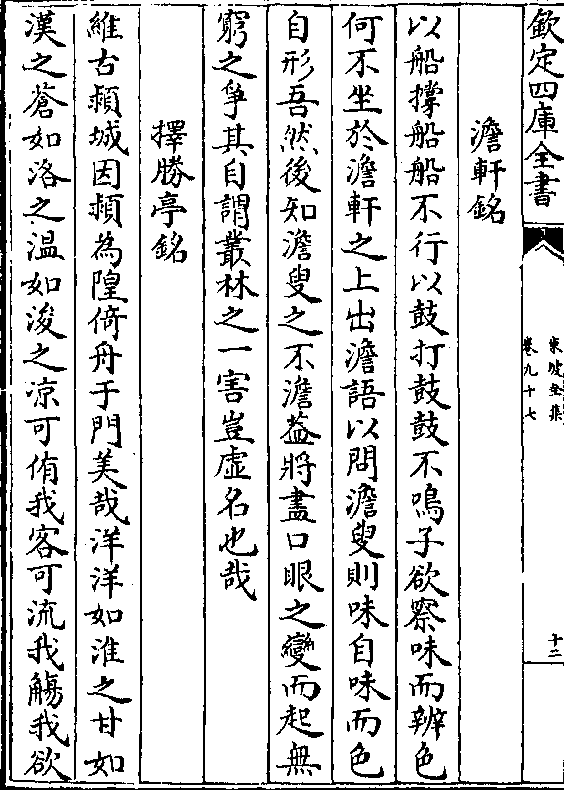 欽定四庫全書
東坡全集
卷九十七
十二
澹軒銘
以船撐船船不行以鼓打鼓鼓不鳴子欲察味而辨色
何不坐於澹軒之上出澹語以問澹叟則味自味而色
自形吾然後知澹叟之不澹葢將盡口眼之變而起無
窮之爭其自謂叢林之一害豈虚名也哉
擇勝亭銘
維古潁城因潁為隍倚舟于門美哉洋洋如淮之甘如
漢之蒼如洛之温如浚之凉可侑我客可流我觴我欲